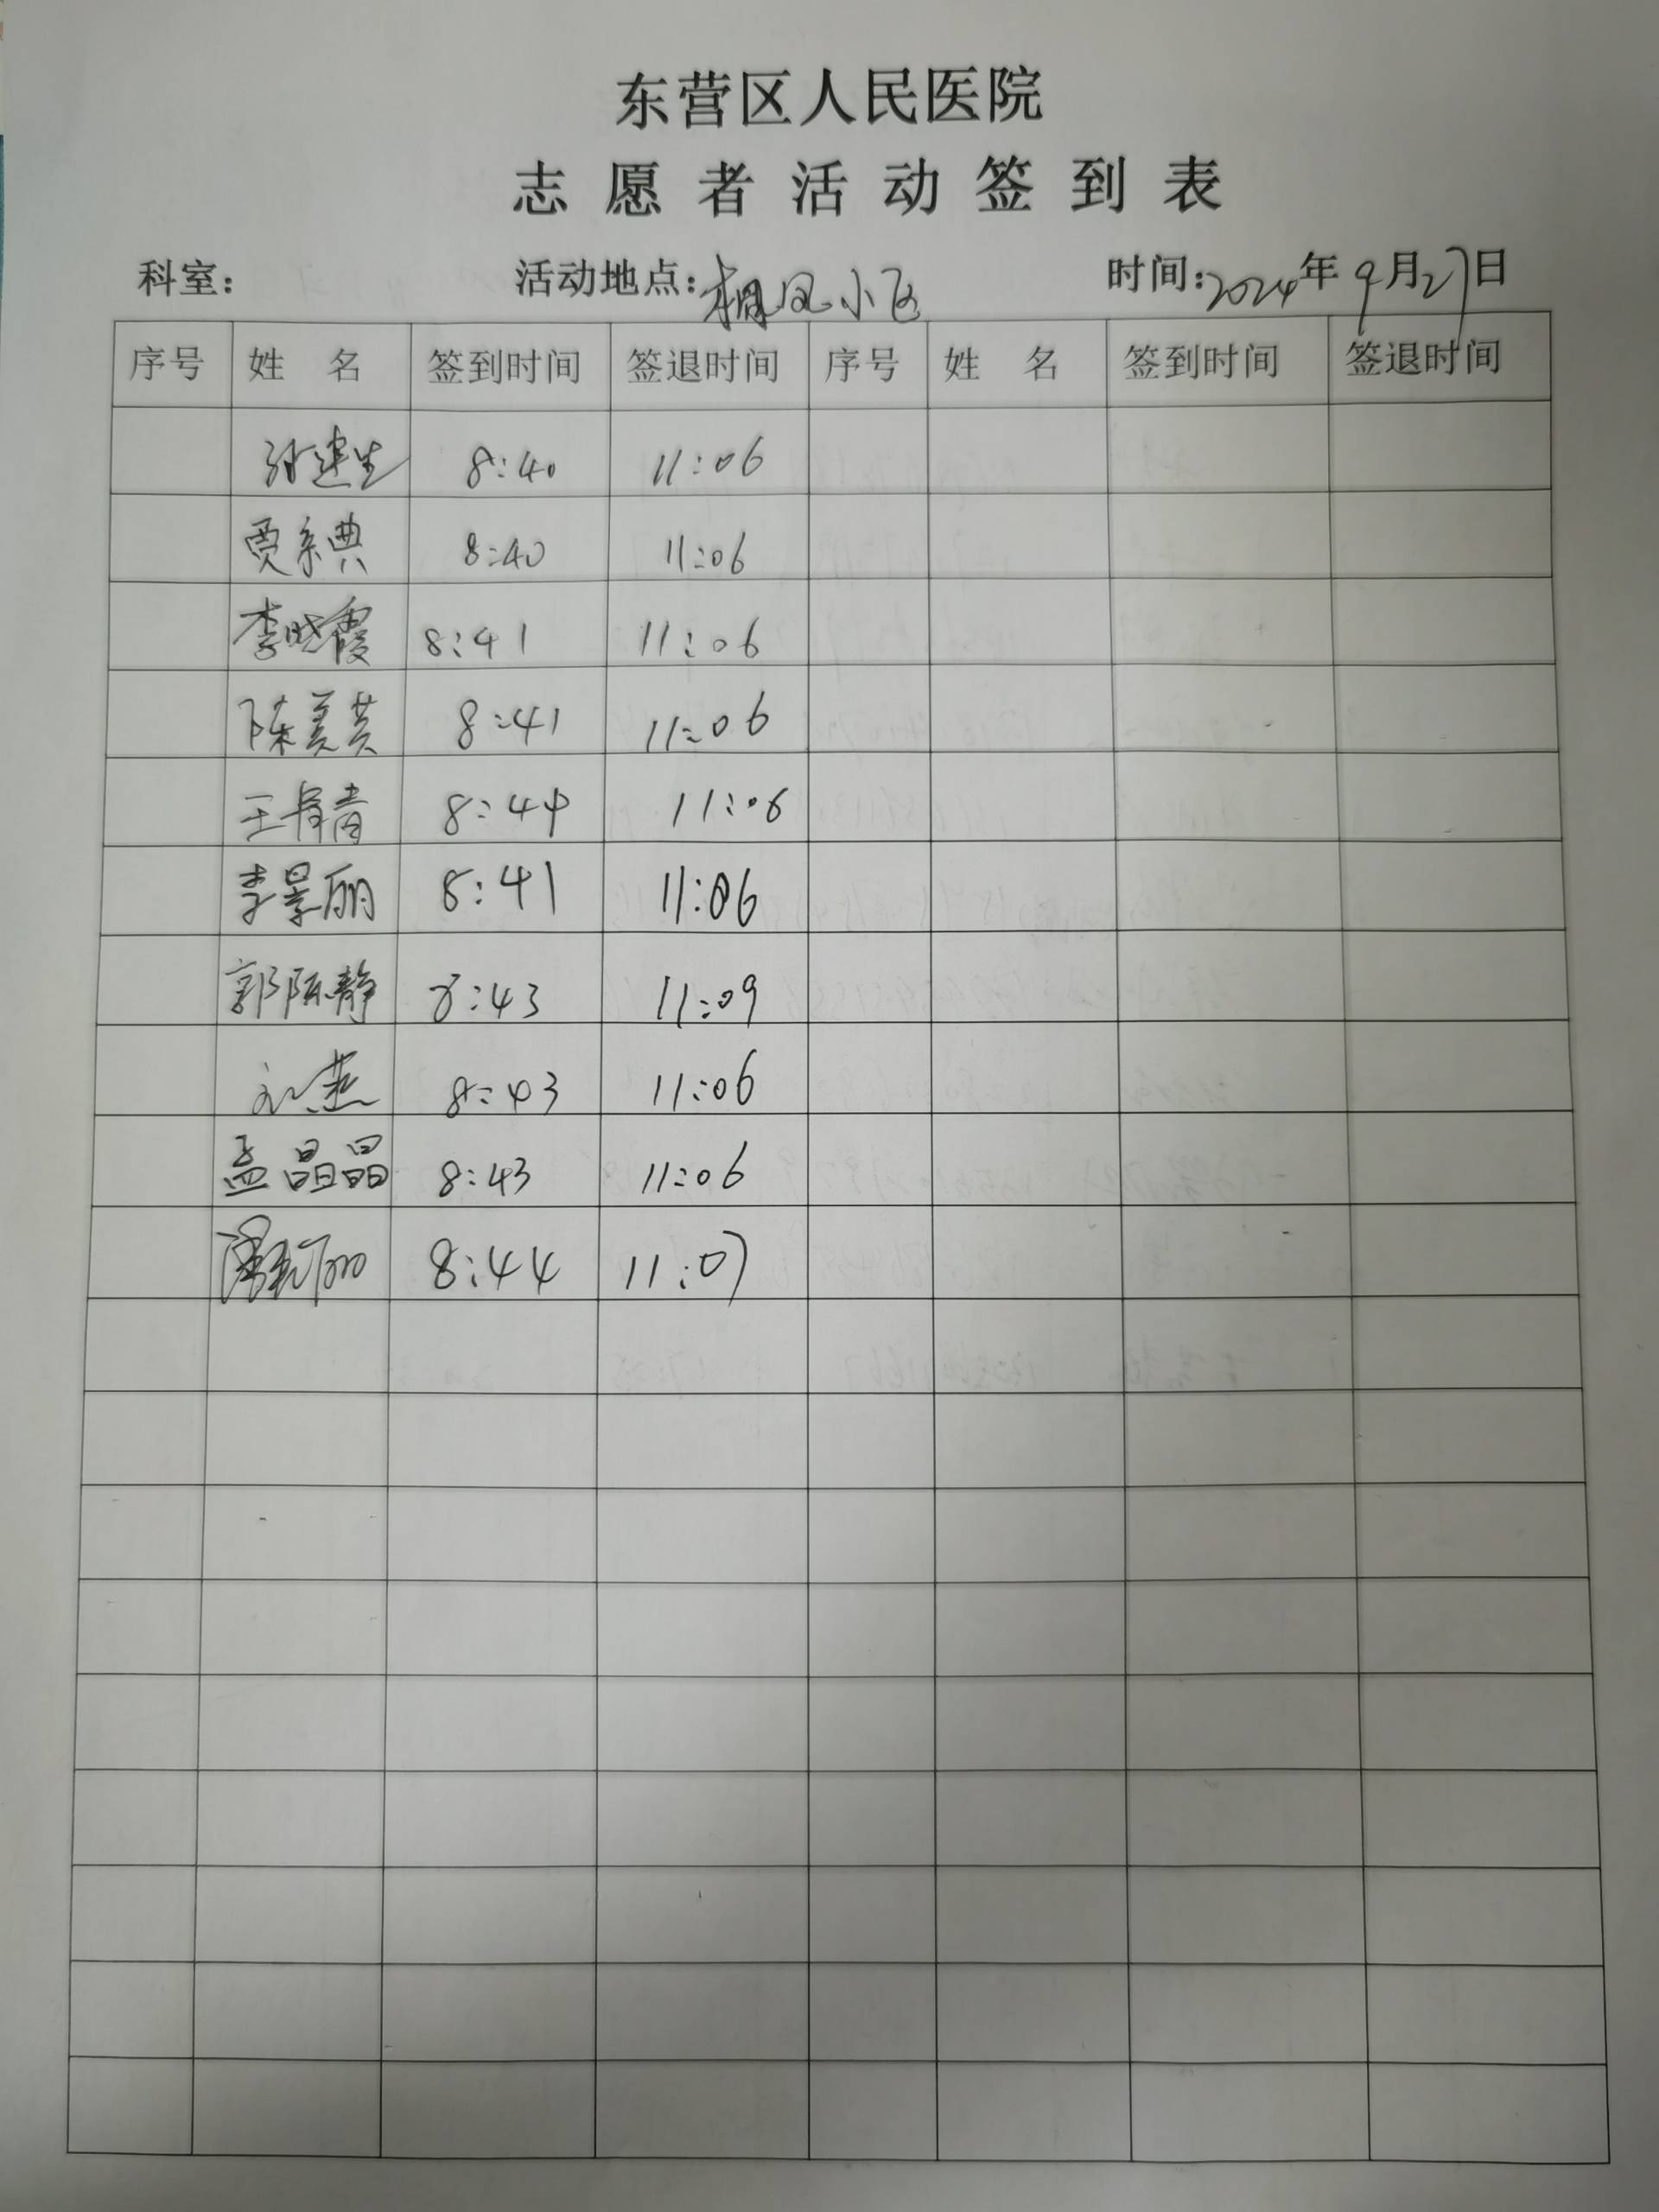 东营区人民医院
志愿者活动签到表
科室: 活动地点:桐凤小区 时间:2024年9月27日
序号 姓名 签到时间 签退时间 序号 姓名 签到时间 签退时间
孙建生 8:40 11:06
贾宗典 8:40 11:06
李晓霞 8:41 11:06
陈美英 8:41 11:06
王肖青 8:44 11:06
李景丽 8:41 11:06
郭陈静 8:43 11:09
刘燕 8:43 11:06
孟晶晶 8:43 11:06
8:44 11:07